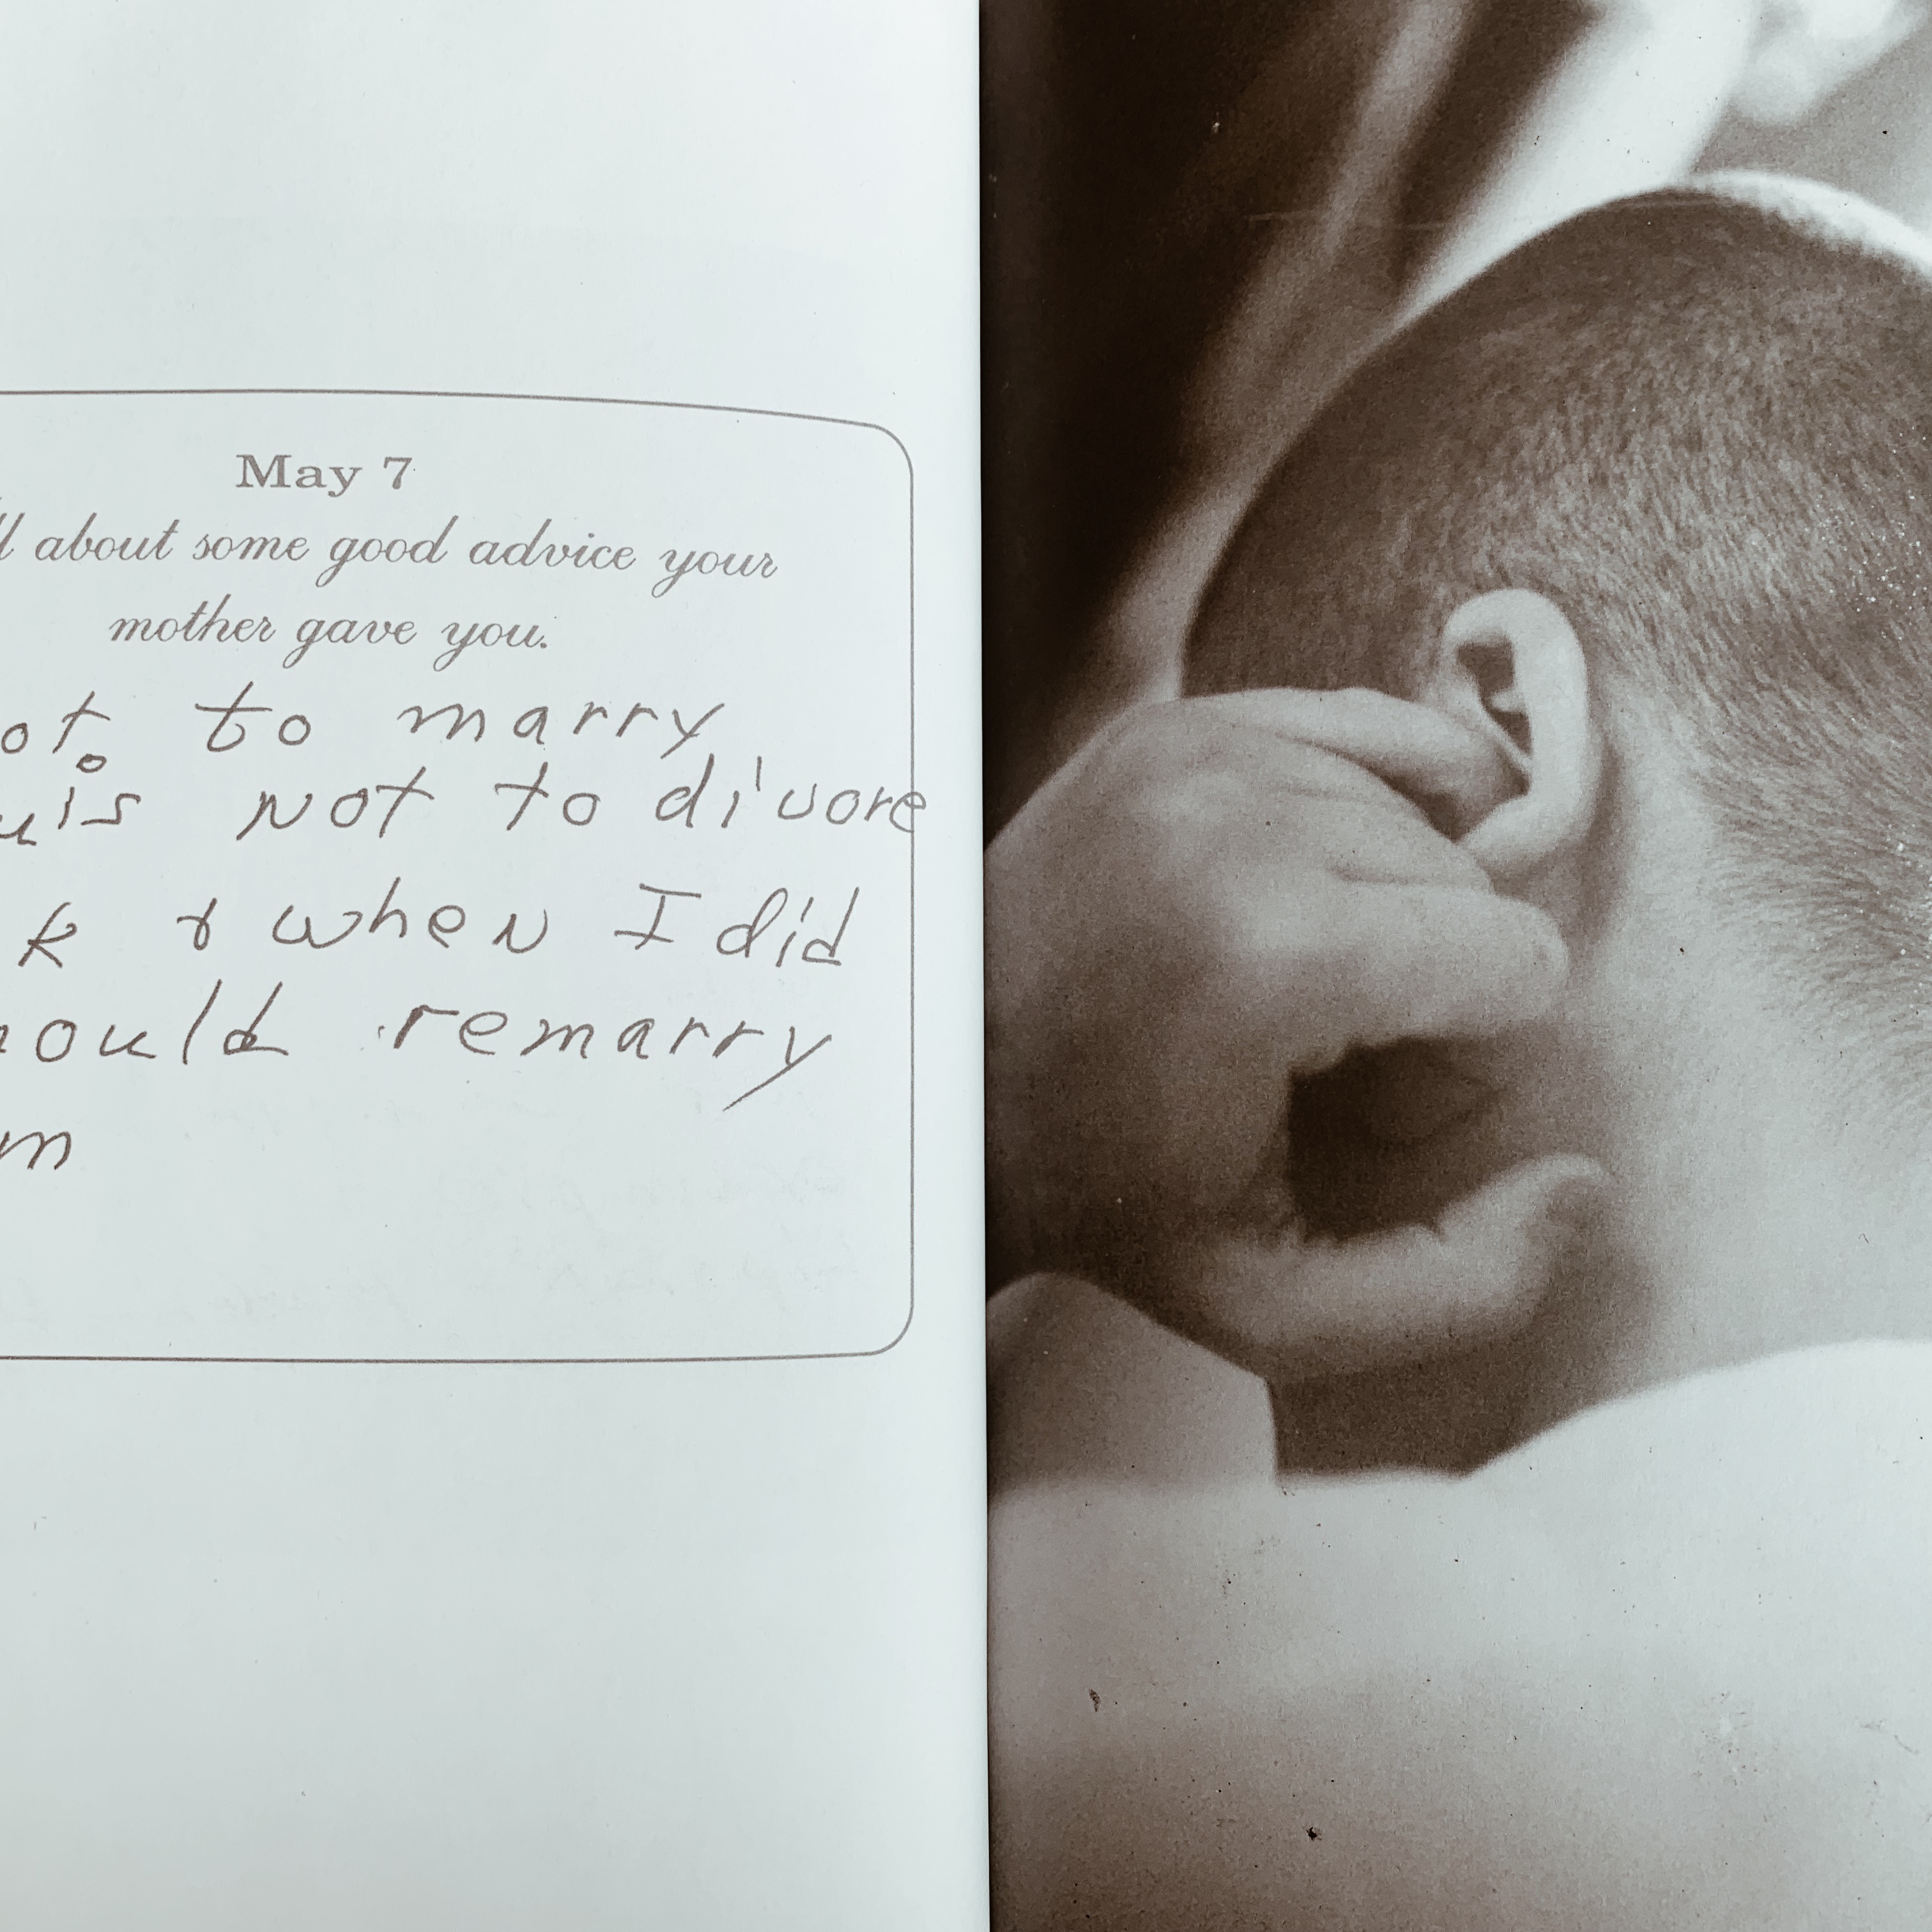 May 7
ll about some good advice your
mother gave you.
ot to marry
uis not to divore
k & when I did
hould remarry
m